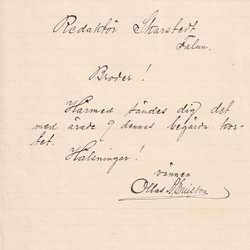 Redaktör Skarstedt,
Falun.
Broder!
Härmed sändes dig det
med ärade 9 dennes begärda kor-
tet.
Hälsningar!
vännen